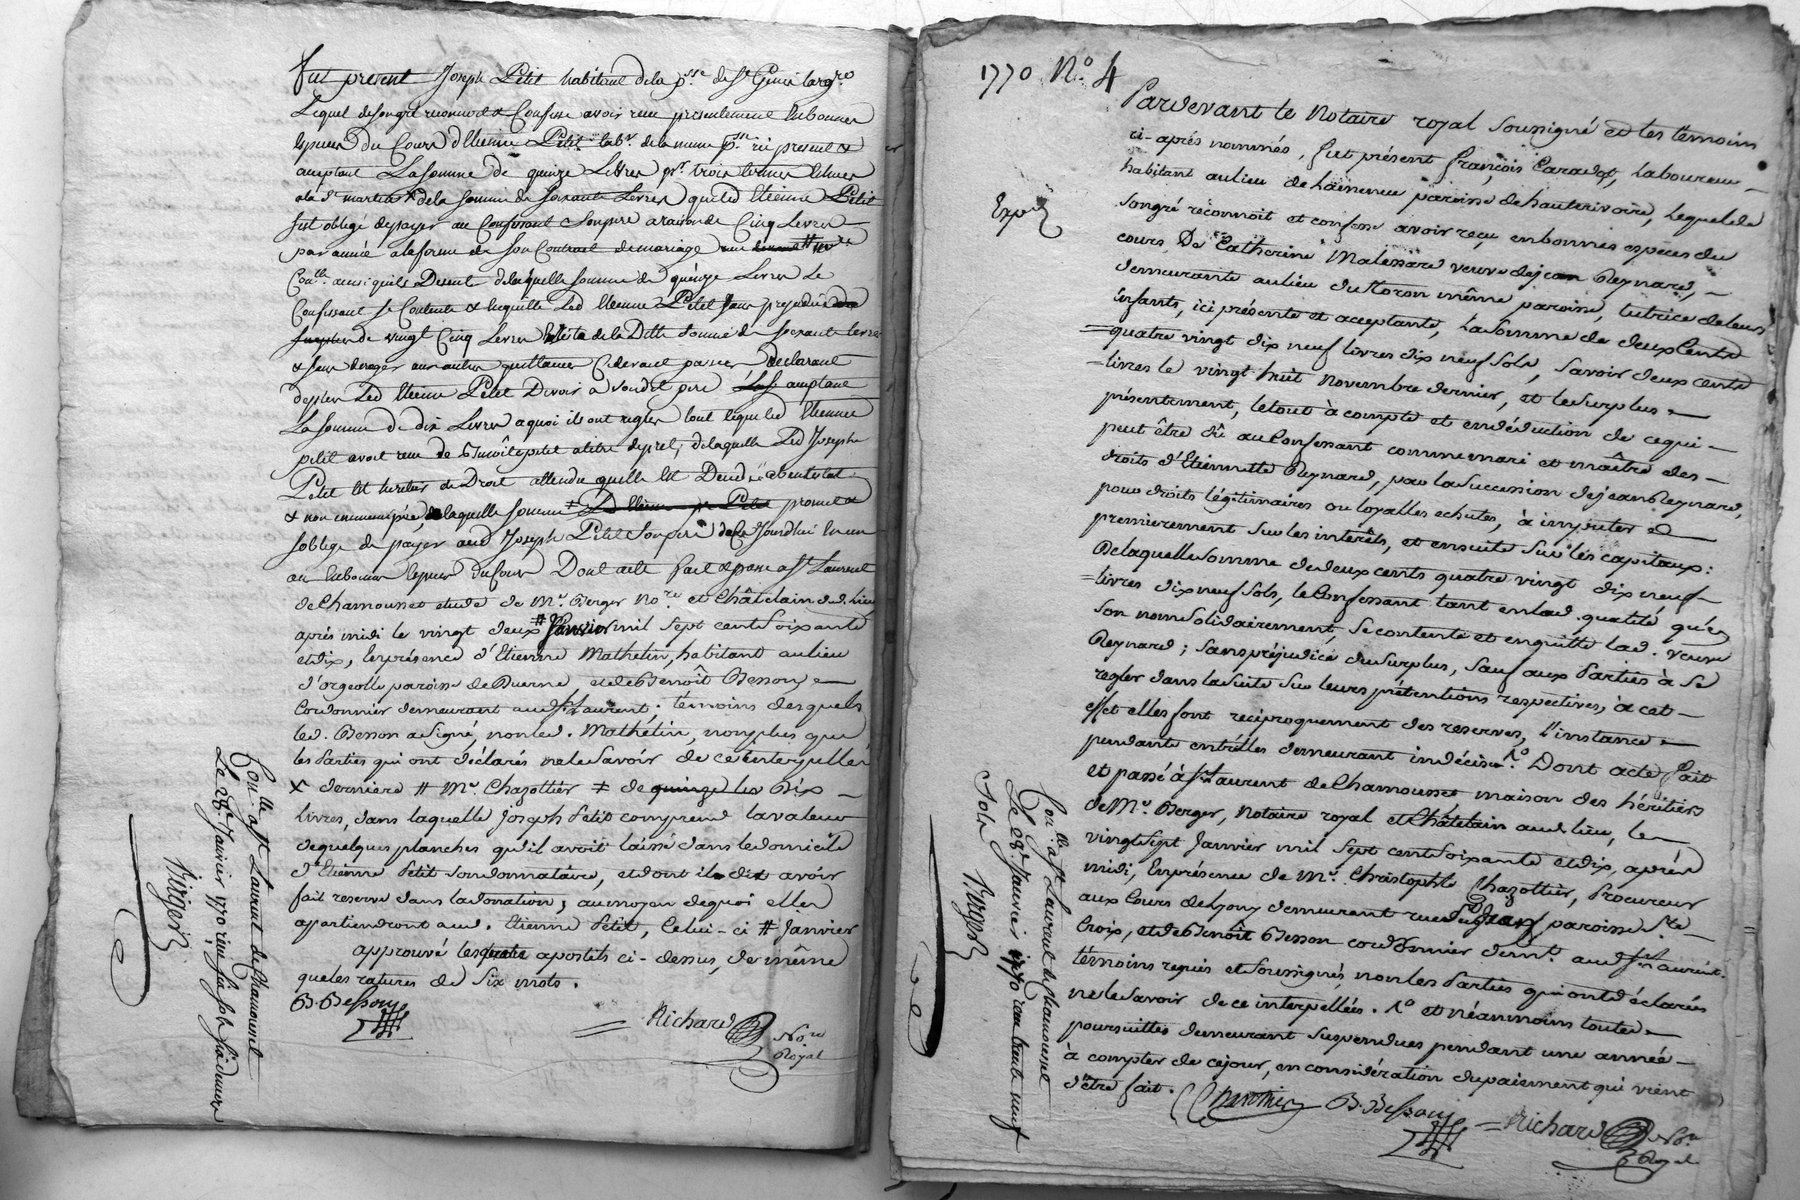 fut present Joseph Petit habitant de la p.sse de St Genis largre
Lequel de son gré reconnoit & Confesse avoir reçu présentement en bonnes
Especes du Cours d'Etienne Petit lab.r de la meme p.sse ici present &
acceptant La somme de quinze Livres pr trois termes échus
a la St martin & de la somme de soixante Livres que led Etienne Petit
fut obligé de payer au Confessant son pere a raison de Cinq Livres
par année a la forme de son Contract de mariage
Con.llé ainsi qu'ils Disent de laquelle somme de quinze Livres Le
Confessant se Contente & en quitte Led Etienne Petit sans prejudice
de vingt Cinq Livres Reste de la Ditte somme de soixante Livres
& sans deroger aux autres quittances Cidevant passées declarant
de plus Led Etienne Petit Devoir a sondit pere acceptant
La somme de dix Livres a quoi ils ont reglés tout ce que led Etienne
petit avoit reçu de Benoit petit a titre de pret, de laquelle Led Joseph
Petit est heritier de Droit attendu qu'elle est Decedée abintestat
& non emancipée de laquelle somme ≠ D Etienne Petit promet &
s'oblige de payer aud Joseph Petit Son pere de Ce Jourdhui en un
an en bonnes especes du Cours Dont acte fait & passé a St Laurent
de Chamousset etude de Me. Berger No.re et Châtelain dud. lieu
après midi le vingt deux # Janvier mil sept cent soixante
et dix, En présence d'Etienne Mathelin, habitant au lieu
d'orgeolle paroisse de Duerne et de Benoît Besson
Cordonnier demeurant aud. St Laurent. témoins desquels
led. Besson a signé, non led. Mathélin, non plus que
les Parties qui ont déclarés ne le savoir de ce interpellés
x derniere # Me. Chazottier ≠ de quinze les dix
livres, dans laquelle Joseph Petit comprend la valeur
de quelques planches qu'il avoit laissé dans le domicile
d'Etienne Petit son donnataire, et dont il dit avoir
fait reserve dans la donation; au moyen de quoi elles
apartiendront aud. Etienne Petit, Celui-ci # Janvier
approuvé les quatre apostils ci-dessus, de même
que les ratures de six mots.
B. Besson
Richard No.re
Royal
Con.llé a St Laurent de Chamousset
Le 28e. Janvier 1770 reçu six sols six deniers
Berger
1770 No. 4
Expé
Pardevant le Notaire royal soussigné et les témoins
ci-après nommés, fut présent françois Caradot, laboureur
habitant au lieu de haineue paroisse de hauterivoire, Lequel de
son gré réconnoit et confesse avoir reçu en bonnes espèces du
cours De Catherine Malessard veuve de jean Reynard,
demeurante au lieu du Moron même paroisse, tutrice de leurs
Enfants, ici présente et acceptante, La somme de deux Cents
quatre vingt dix neuf livres dix neuf sols, savoir deux cents
livres le vingt huit Novembre dernier, et le surplus
présentement, le tout à compte et en déduction de ce qui
peut être dû au Confessant comme mari et maître des
droits d'Etiennette Reynard, par la succession de jean Reynard,
pour droits légitimaires ou loyalles echutes, à imputer
premierement sur les intérêts, et ensuite sur les capitaux:
De laquelle somme de deux cents quatre vingt dix neuf
livres dix neuf sols, le Confessant tant en lad. qualité qu'en
son nom solidairement, se contente et en quitte lad. veuve
Reynard; sans préjudice du surplus, sauf aux Parties à se
regler dans la suite sur leurs prétentions respectives, à cet
effet elles font reciproquement des reserves, l'instance
pendante entr'elles demeurant indécise. Dont acte fait
et passé à St Laurent de Chamousset maison des héritiers
de Me. Berger, Notaire royal et Châtelain aud. lieu, le
vingt sept Janvier mil sept cent soixante et dix, après
midi, En présence de Me. Christophle Chazottier, Procureur
aux Cours de Lyon y demeurant rue St Jean, paroisse Ste
Croix, et de Benoît Besson cordonnier demt. aud. St Laurent.
témoins requis et soussignés, non les Parties qui ont déclarés
ne le savoir de ce interpellées. et néanmoins toutes
poursuittes demeurant suspendues pendant une année
à compter de ce jour, en considération du paiement qui vient
d'être fait.
B. Besson
Richard No.re
Royal
Con.llé a St Laurent de Chamousset
Le 28e. Janvier 1770 reçu trente neuf
sols Berger